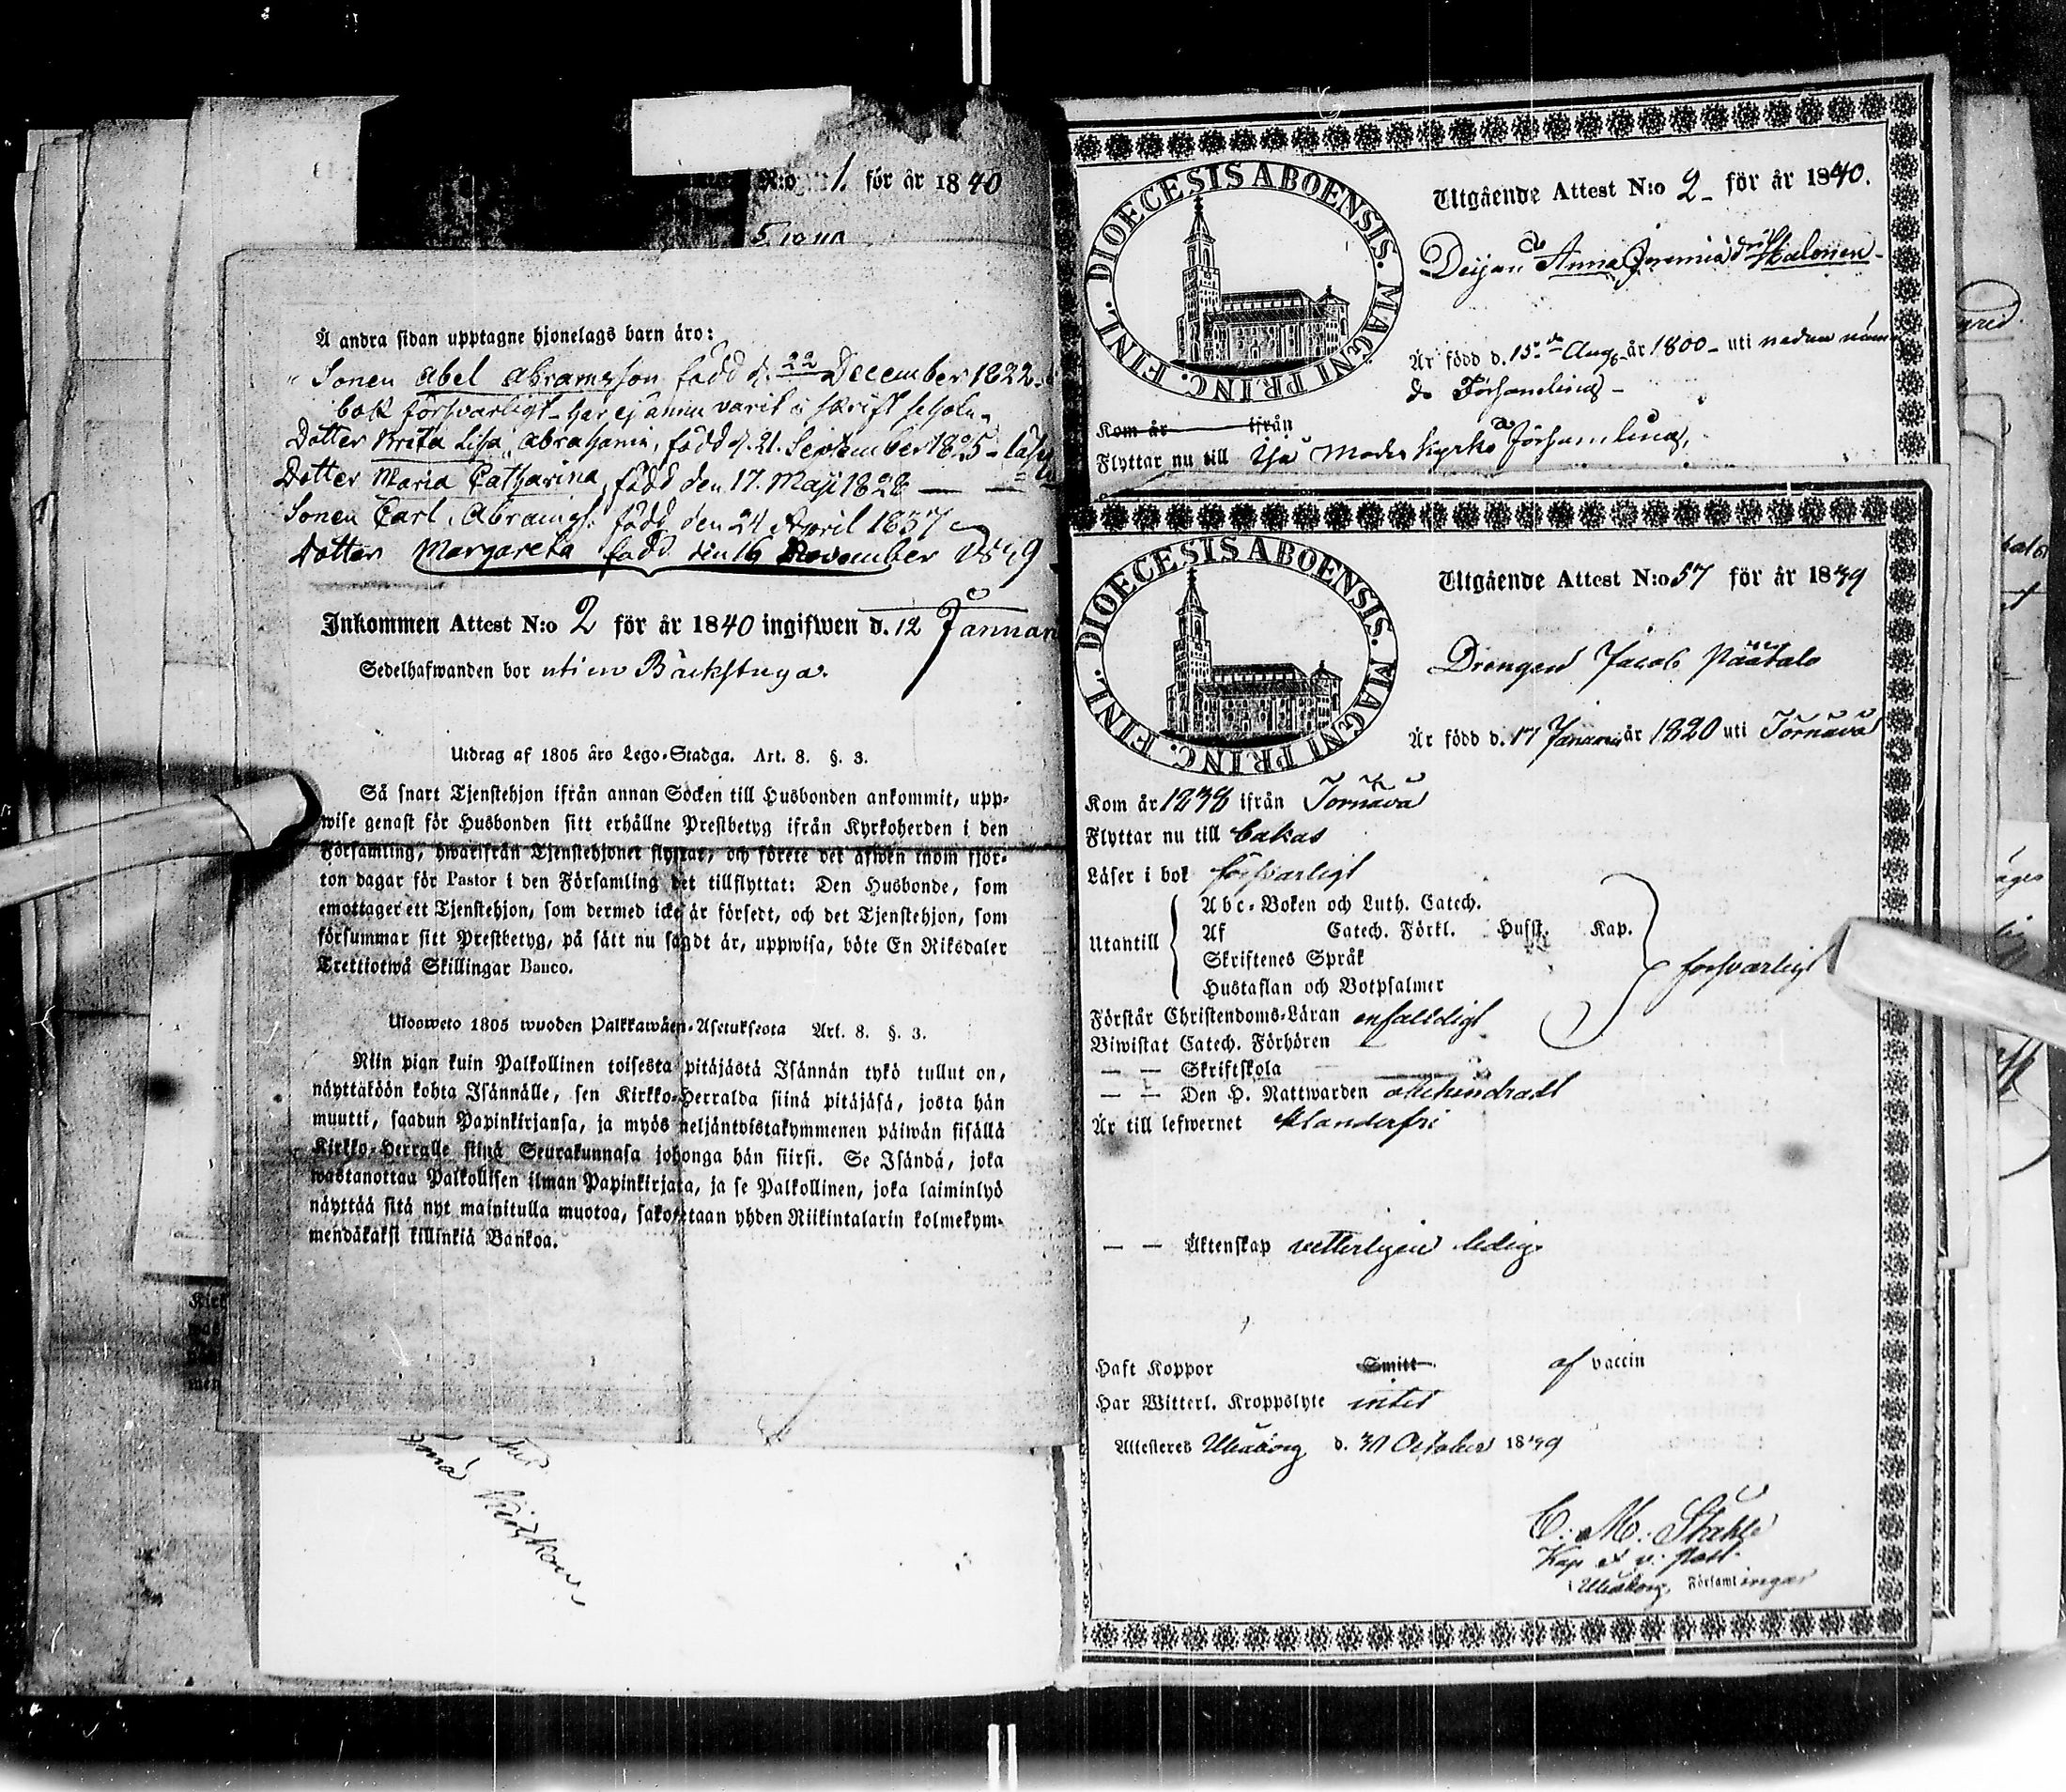 N:o 1. för år 1840
Å andra sidan upptagne hjonelags barn äro:
Sonen Abel Abramsson född d. 22 December 1822.
bok försvarligt har ej ännu varit i skrift schola
Dotter Brita Lisa Abrahams. född d. 21. September 1825
Dotter Maria Catharina, född den 17. Maji 1828
Sonen Carl Abramss. född den 24 April 1837
Dotter Margareta född den 16 November 1839
Inkommen Attest N:o 2 för år 1840 ingifwen d. 12 Januari
Sedelhafwanden bor uti en Backstuga.
Utdrag af 1805 års Lego-Stadga. Art. 8. §. 3.
Så snart Tjenstehjon ifrån annan Socken till Husbonden ankommit, upp-
wise genast för Husbonden sitt erhållne Prestbetyg ifrån Kyrkoherden i den
Församling, hwarifrån Tjenstehjonet flyttat, och förete det äfwen inom fjor-
ton dagar för Pastor i den Församling det tillflyttat: Den Husbonde, som
emottager ett Tjenstehjon, som dermed icke är försedt, och det Tjenstehjon, som
försummar sitt Prestbetyg, på sätt nu sagdt är, uppwisa, böte En Riksdaler
Trettiotwå Skillingar Banco.
Ulosweto 1805 wuoden Palkkawäen-Asetuksesta Art. 8. §. 3.
Niin pian kuin Palkollinen toisesta pitäjästä Isännän tykö tullut on,
näyttäköön kohta Isännälle, sen Kirkko-Herralda siinä pitäjäsä, josta hän
muutti, saadun Papinkirjansa, ja myös neljäntoistakymmenen päiwän sisällä
Kirkko-Herralle siinä Seurakunnasa johonga hän siirsi. Se Isändä, joka
wastanottaa Palkollisen ilman Papinkirjata, ja se Palkollinen, joka laiminlyö
näyttää sitä nyt mainitulla muotoa, sakotetaan yhden Riikintalarin kolmekym-
mendäkaksi killinkiä Bankoa.
DIOECESIS ABOENSIS. MAGNI PRINC. FINL.
Utgående Attest N:o 2 för år 1840.
Anna Jeremiad:r
Är född d. 15:de Aug. år 1800 uti nedan nämn
de Församling
Kom år ifrån
Flyttar nu till Ijå Moder kyrko Församling,
DIOECESIS ABOENSIS. MAGNI PRINC. FINL.
Utgående Attest N:o 57 för år 1839
Drengen Jacob Päätalo
Är född d. 17 Januari år 1820 uti Tornävä
Kom år 1838 ifrån Tornävä
Flyttar nu till
Läser i bok försvarligt
Utantill
Abc-Boken och Luth. Catech.
Af Catech. Förkl. Husst. Kap.
Skriftenes Språk
Hustaflan och Botpsalmer
försvarligt
Förstår Christendoms-Läran enfaldigt
Biwistat Catech. Förhören
— — Skriftskola
— — Den H. Nattwarden obehindradt
Är till lefwernet klanderfri
— — Äktenskap vetterligen ledig
Haft Koppor Smitt af vaccin
Har Witterl. Kroppslyte intet
Attesteras Uleåborg d. 31 October 1839
C. M. Stahle
Kap. et v. past.
i Uleåborg Församlingar